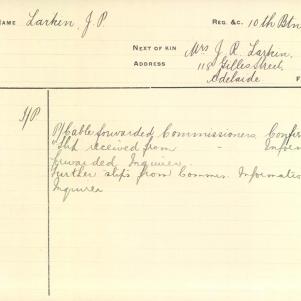 NAME Larkin, J. P. REG. &C. 10th Btn
NEXT OF KIN Mrs J. R. Larkin,
ADDRESS 118 Gilles Street,
Adelaide F
S/P P/Cable forwarded Commissioners Confir
Slip received from " Inform
forwarded Inquirer.
Further slips from Commrs. Informatio
Inquirer